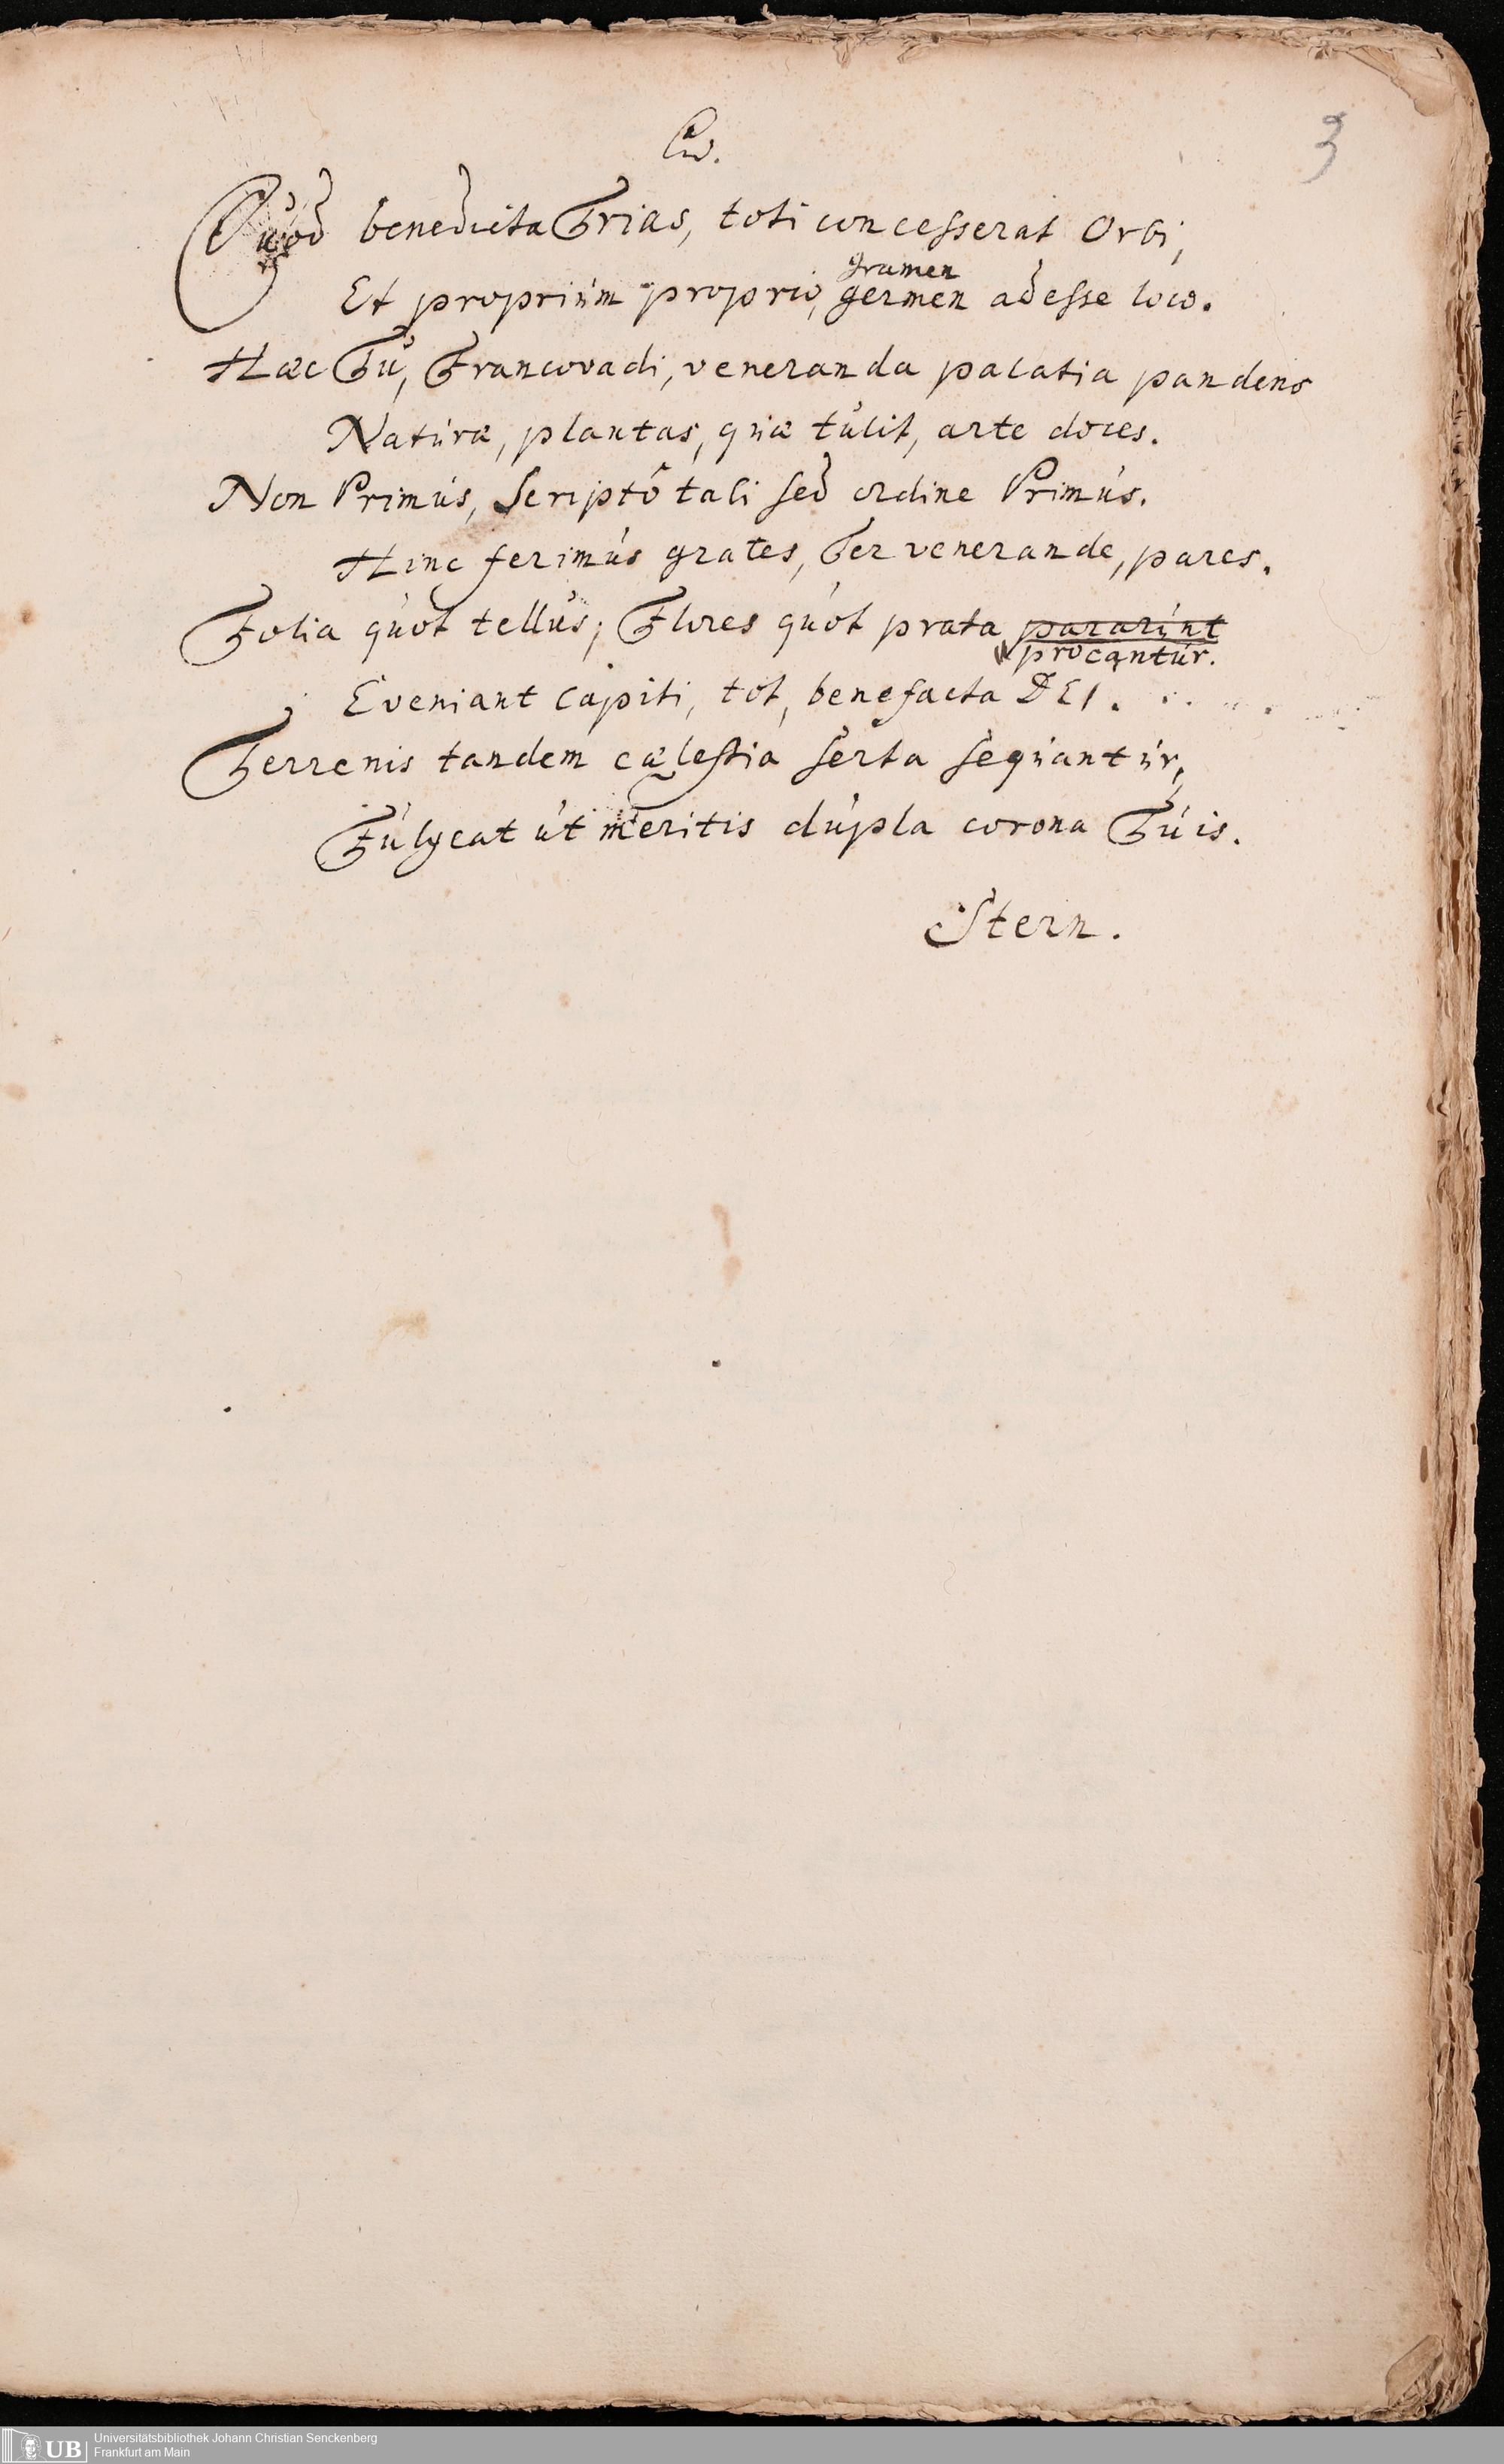 3
Quod benedicta Trias, toti concesserat Orbi,
gramen
Et propriúm proprio, germen adesse loco.
Hæc Tú, Francovadi, veneranda palatia pandens
Natúræ, plantas, qúæ túlit, arte doces.
Non Primús, Scriptô tali sed ordine Primús.
Hinc ferimús grates, Ter venerande, pares.
Folia qúot tellús; Flores qúot prata pararúnt
procantúr.
Eveniant capiti, tot, benefacta DEI.
Terrenis tandem cælestia serta seqúantúr,
Fúlgeat út meritis dúpla corona Túis.
Stern.
UB
Universitätsbibliothek Johann Christian Senckenberg
Frankfurt am Main